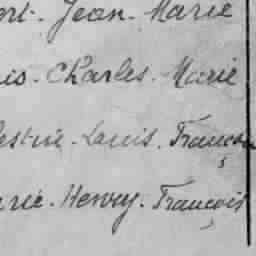 ort. Jean. Marie
is. Charles. Marie
estin. Louis. François
arie. Henry. François